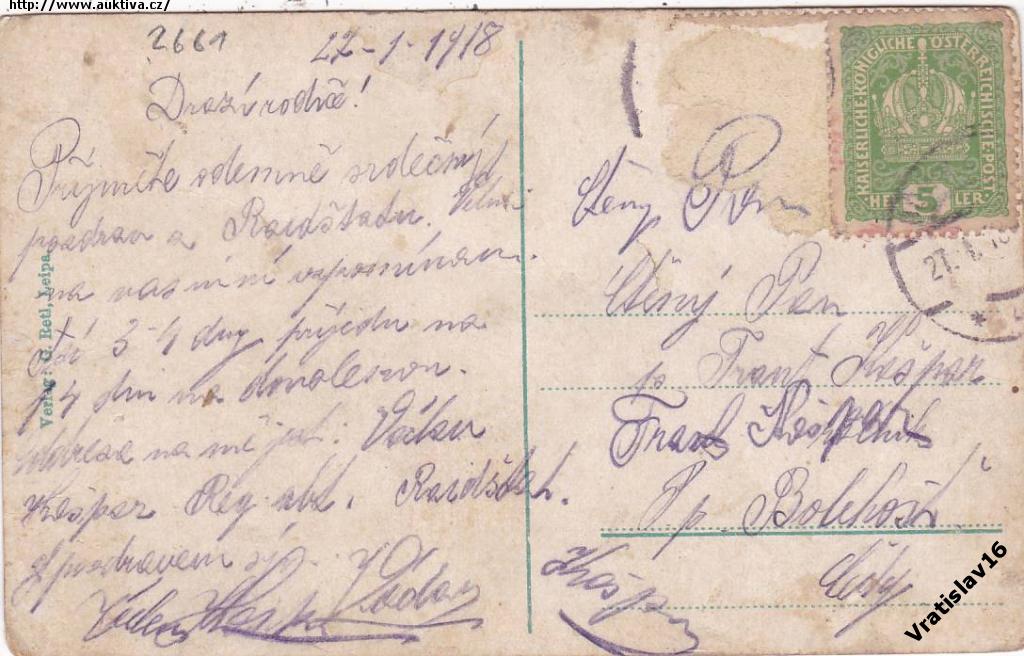 http://www.auktiva.cz/
2661
27-1-1918
Drazí rodiče!
Přijměte odemně srdečný
pozdrav z Raidštatu.
na vzpomínám.
3-4 dny přijedu na
14 dní na dovolenou.
Adresa na mě jest: Václav
Kešpar Reg. Raidštat.
S pozdravem syn
Václav
Verlag: G. Retl, Leipa
KAISERLICHE KÖNIGLICHE ÖSTERREICHISCHE POST
5 HELLER
27. I. 18
Ctěný Pan
Ctěný Pan
p. Frant Kešpar
Frant Kešpar
P. p. Bolehošť
Čechy
Vratislav16